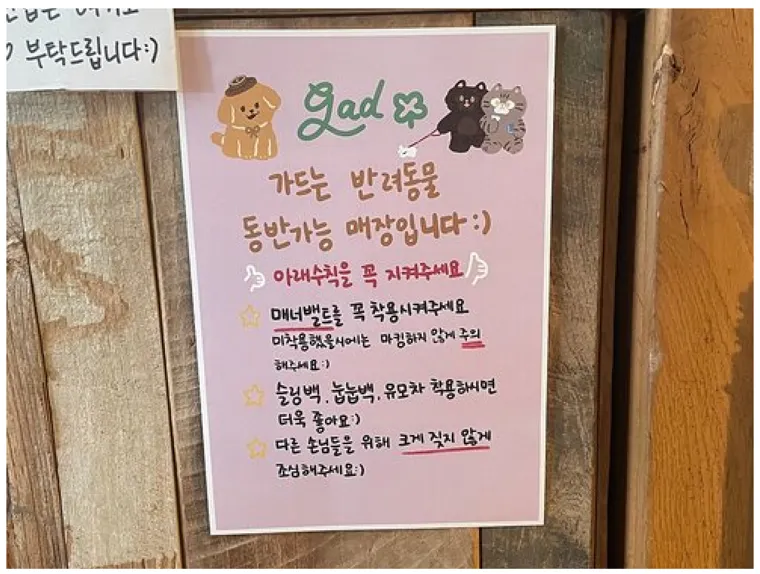 부탁드립니다:)
gad
가드는 반려동물
동반가능 매장입니다:)
아래수칙을 꼭 지켜주세요
매너밸트를 꼭 착용시켜주세요
미착용했을시에는 마킹하지 않게 주의
해주세요:)
슬링백, 눕눕백, 유모차 착용하시면
더욱 좋아요:)
다른 손님들을 위해 크게 짖지 않게
조심해주세요:)